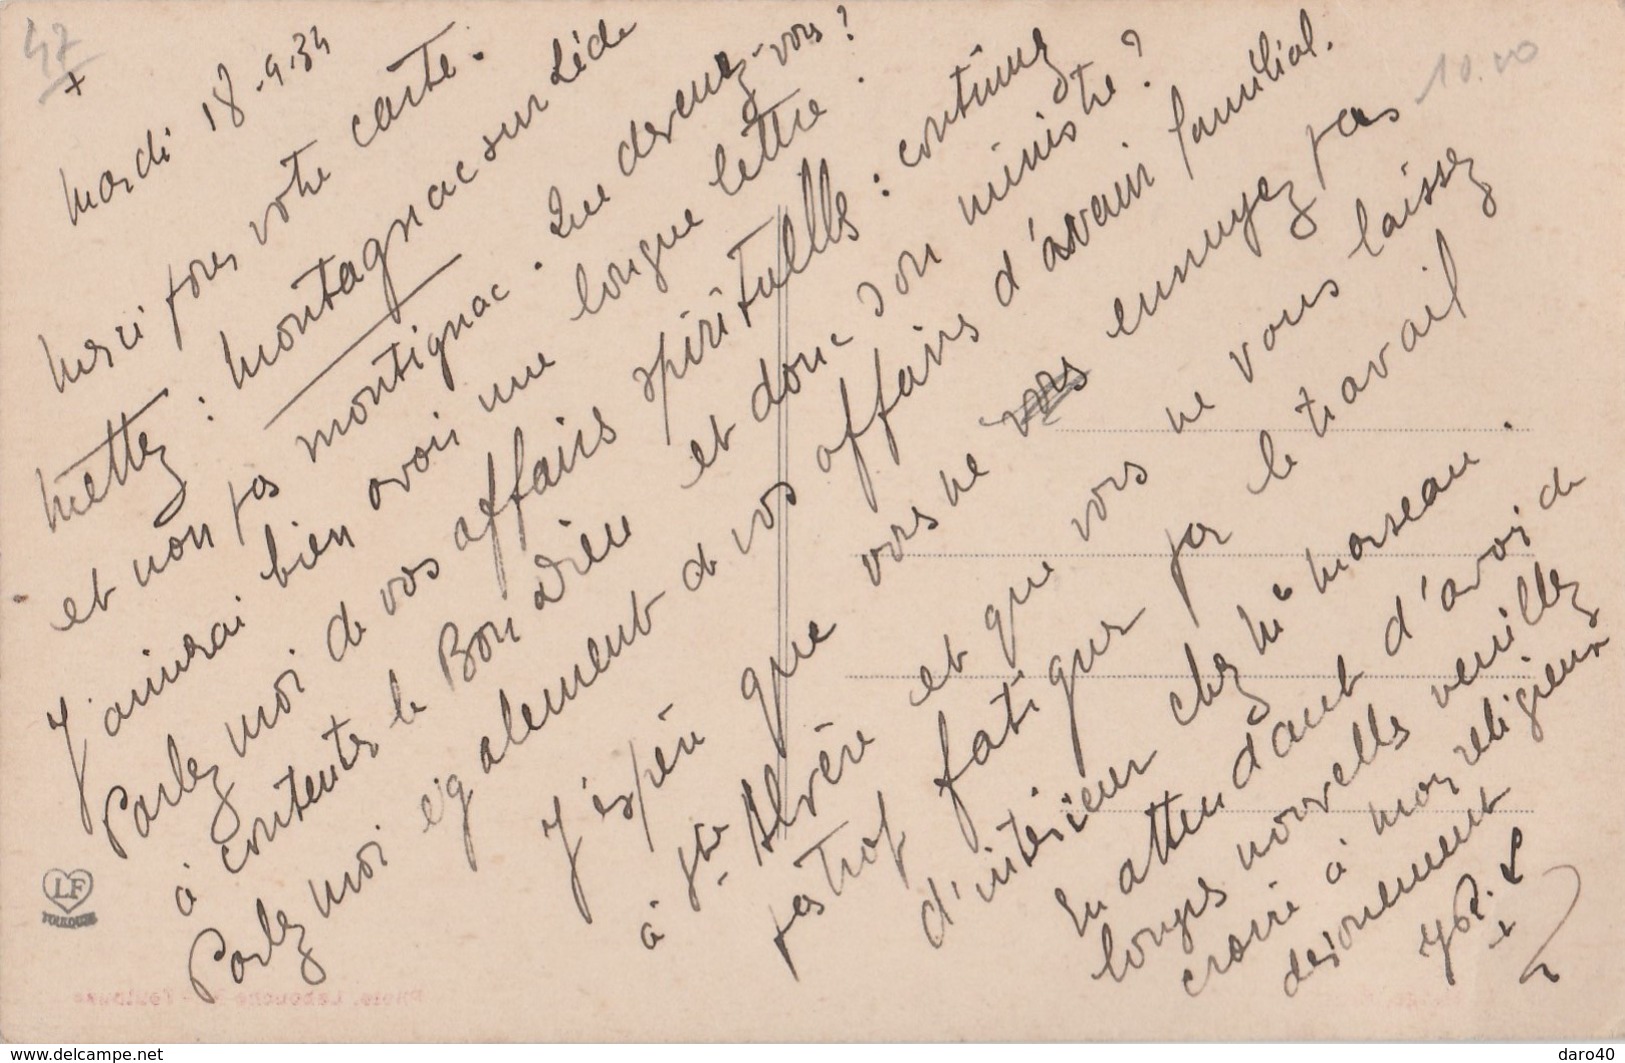 47
+
10.00
Mardi 18-9-34
Merci pour votre carte.
Mettez : Montagnac sur Lède
et non pas Montignac. Que devenez-vous ?
J'aimerai bien avoir une longue lettre.
Parlez moi de vos affaires spirituelles : continuez
à contenter le Bon Dieu et donc son ministre ?
Parlez moi également de vos affaires d'avenir familial.
J'espère que vous ne vous ennuyez pas
à Ste Alvère et que vous ne vous laissez
pas trop fatiguer par le travail
d'intérieur chez Me Marseau.
En attendant d'avoir de
longues nouvelles veuillez
croire à mon religieux
dévouement
LF
TOULOUSE
Photo. Labouche - Toulouse
www.delcampe.net
daro40